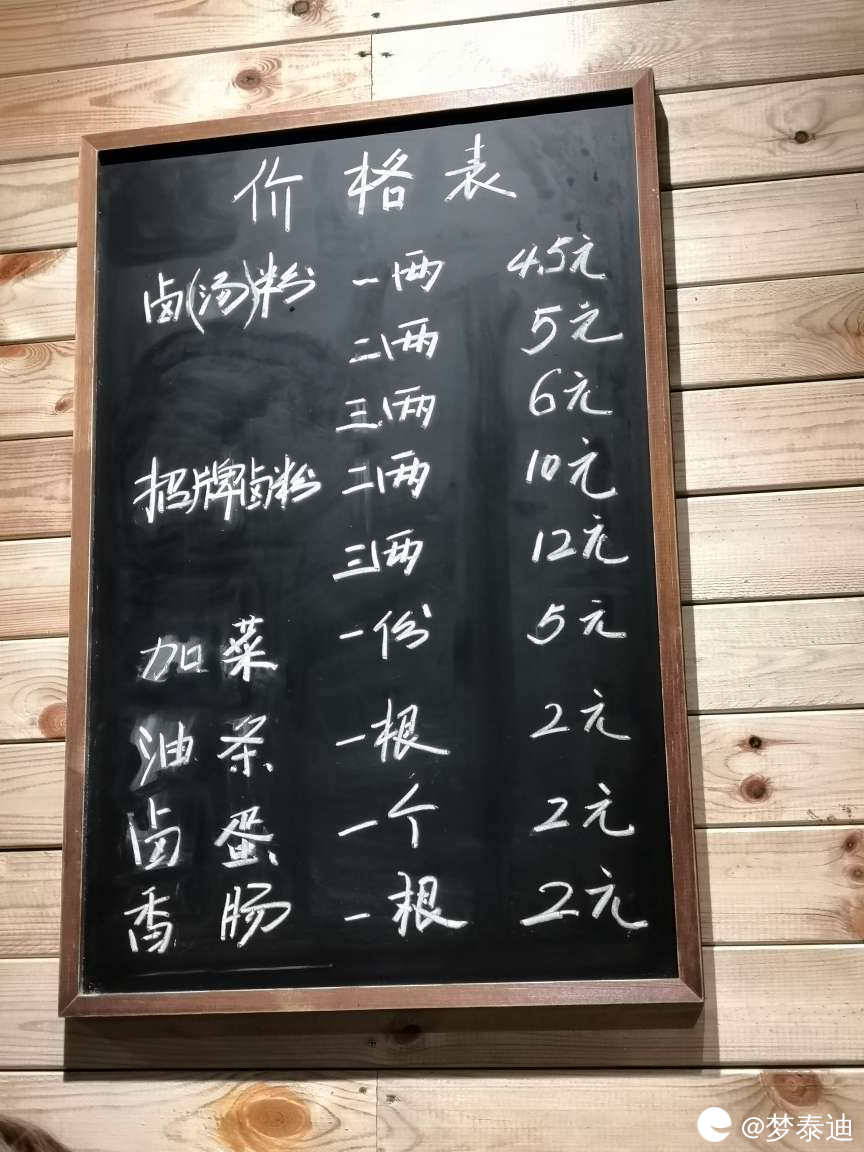 价格表
卤(汤)粉 一两 4.5元
二两 5元
三两 6元
招牌卤粉 二两 10元
三两 12元
加菜 一份 5元
油条 一根 2元
卤蛋 一个 2元
香肠 一根 2元
@梦泰迪